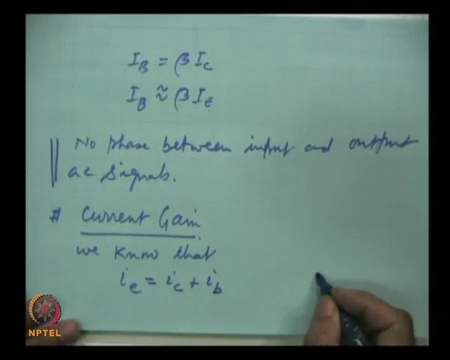 I_B = βI_C
I_B ≈ βI_E
No phase between input and output
ac signals.
# Current Gain
we know that
i_e = i_c + i_b
NPTEL